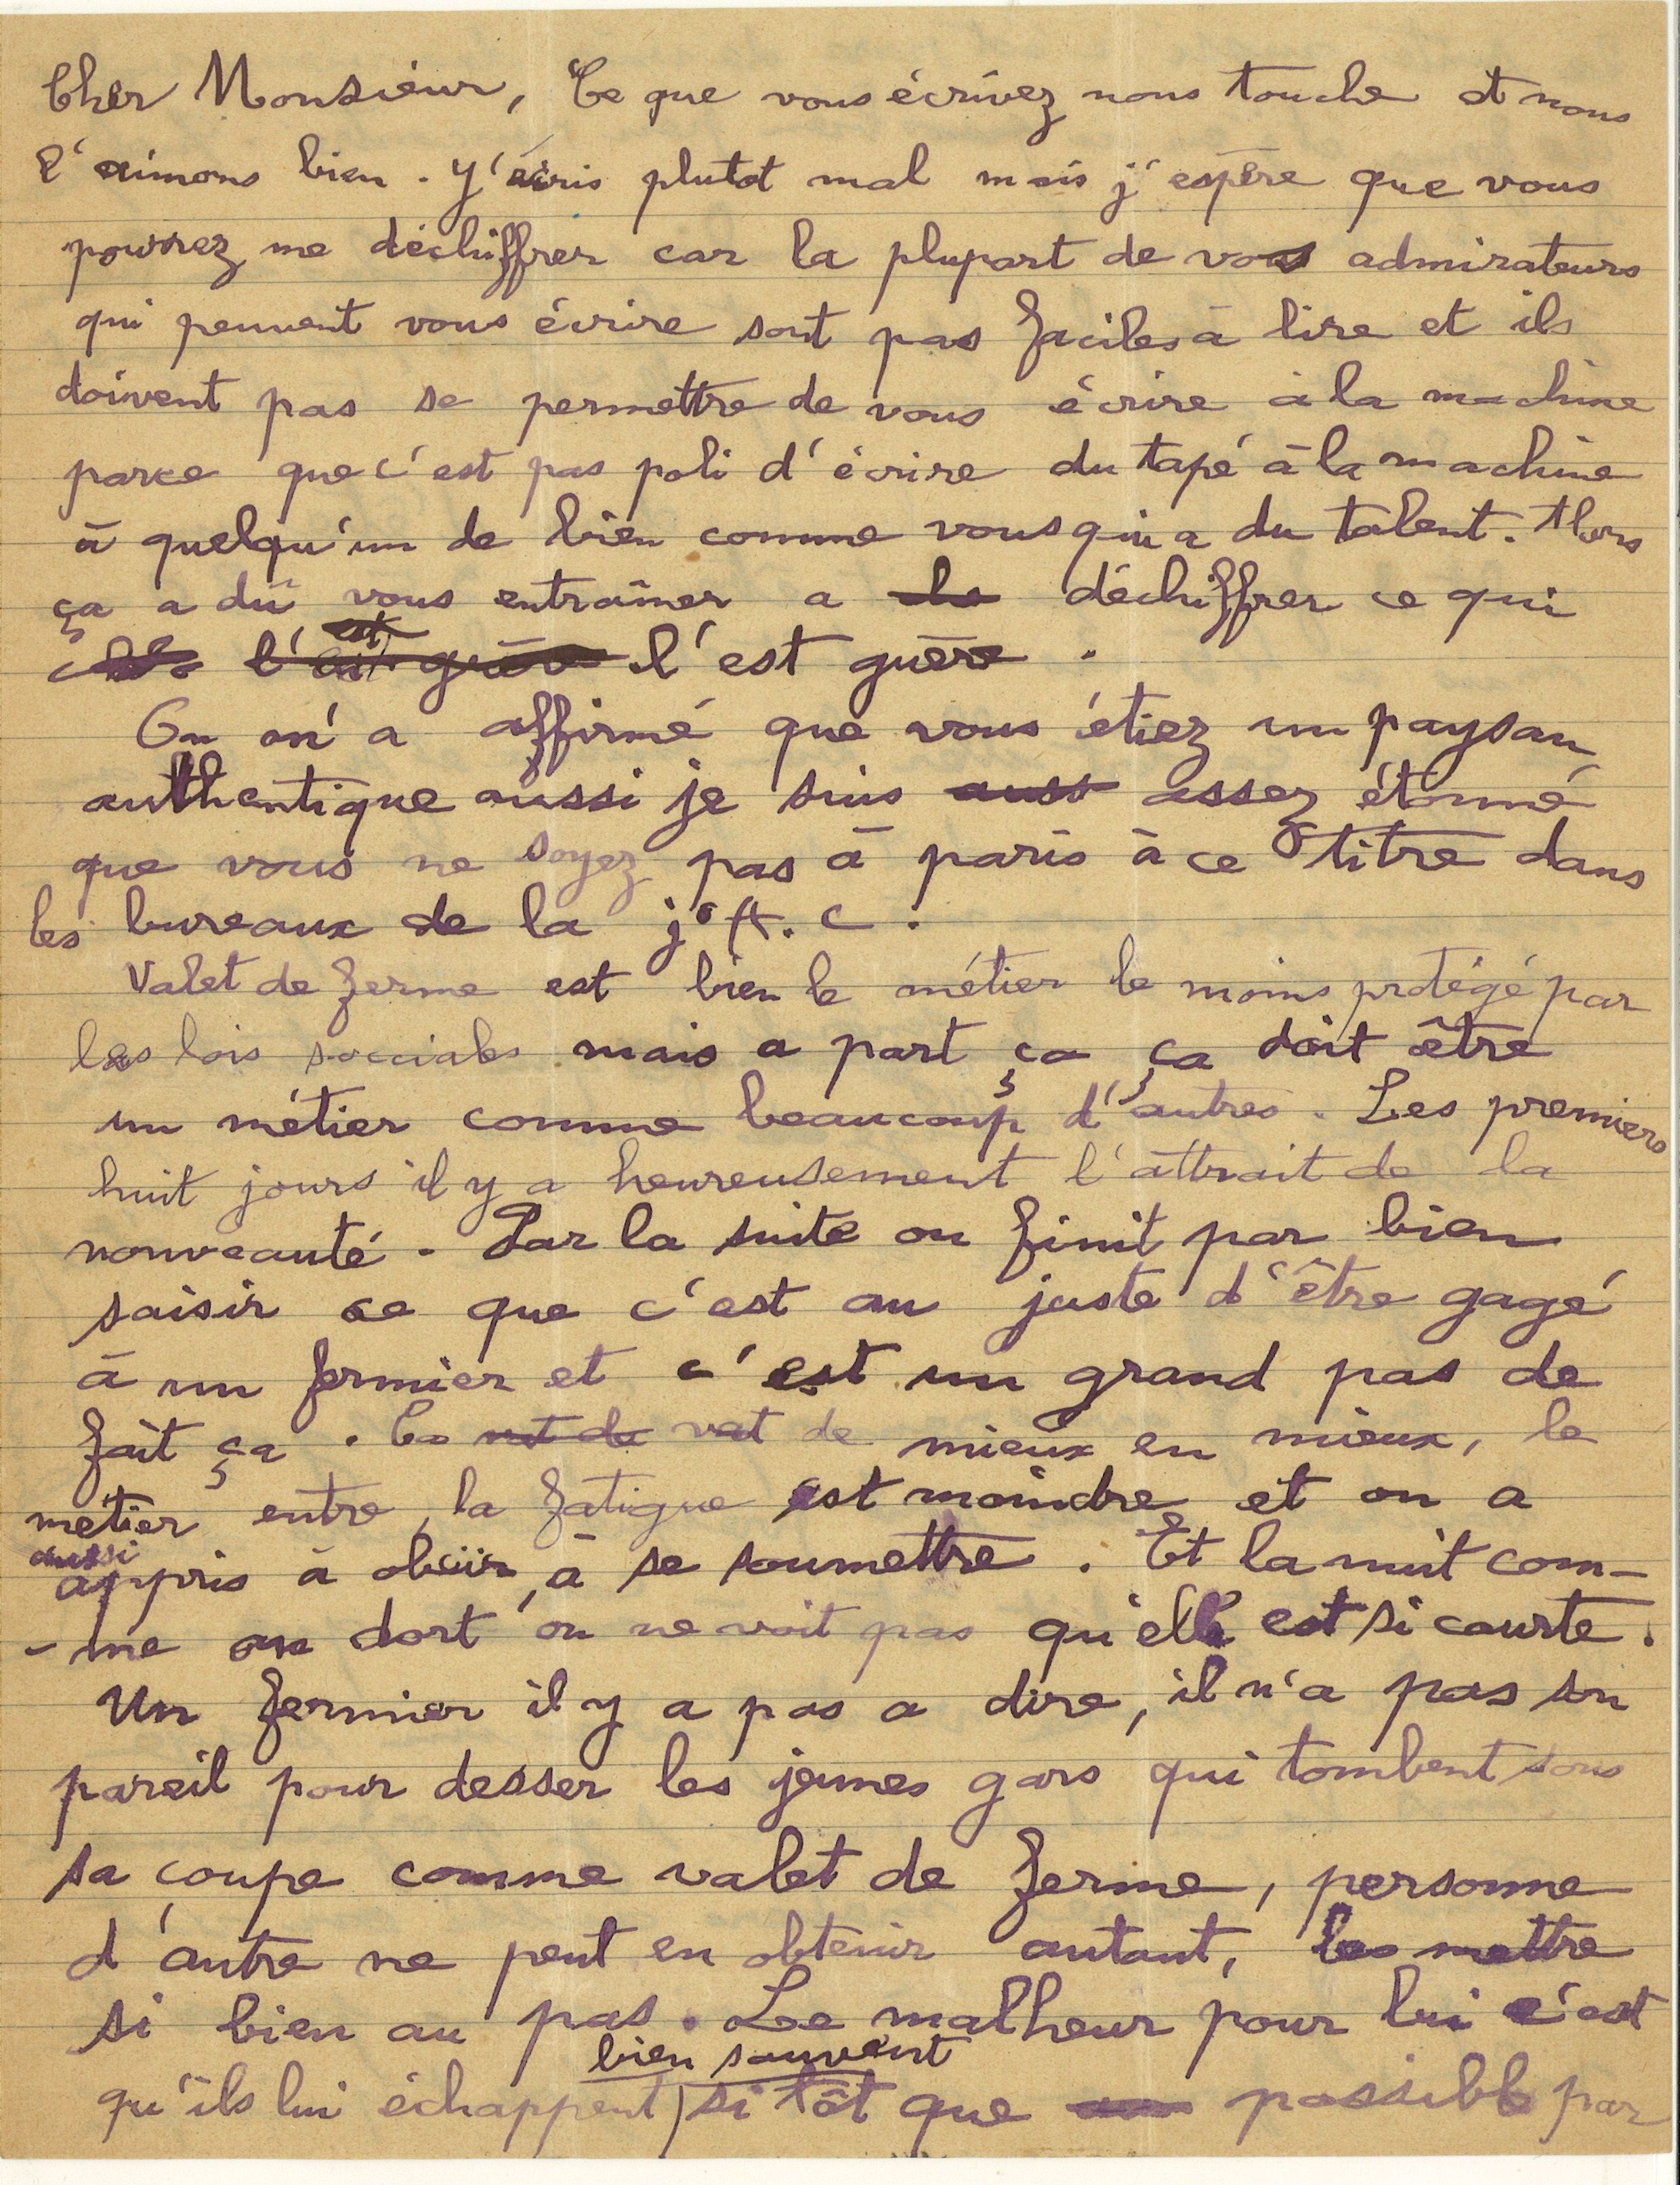 Cher Monsieur, Ce que vous écrivez nous touche et nous
l'aimons bien. J'écris plutot mal mais j'espère que vous
pourrez me déchiffrer car la plupart de vos admirateurs
qui peuvent vous écrire sont pas faciles à lire et ils
doivent pas se permettre de vous écrire à la machine
parce que c'est pas poli d'écrire du tapé à la machine
à quelqu'un de bien comme vous qui a du talent. Alors
ça a dû vous entraîner a déchiffrer ce qui
l'est guère.
On m'a affirmé que vous étiez un paysan
authentique aussi je suis assez étonné
que vous ne soyez pas à paris à ce titre dans
les bureaux de la j.A.C.
Valet de ferme est bien le métier le moins protégé par
les lois sociales mais a part ça ça doit être
un métier comme beaucoup d'autres. Les premiers
huit jours il y a heureusement l'attrait de la
nouveauté. Par la suite on finit par bien
saisir ce que c'est au juste d'être gagé
à un fermier et c'est un grand pas de
fait ça. Ca vat de mieux en mieux, le
métier entre, la fatigue est moindre et on a
aussi
appris à obéir, à se soumettre. Et la nuit com-
-me on dort on ne voit pas qu'elle est si courte.
Un fermier il y a pas a dire, il n'a pas son
pareil pour desser les jeunes gars qui tombent sous
sa coupe comme valet de ferme, personne
d'autre ne peut en obtenir autant, les mettre
si bien au pas. Le malheur pour lui c'est
bien souvent
qu'ils lui échappent si tôt que possible par